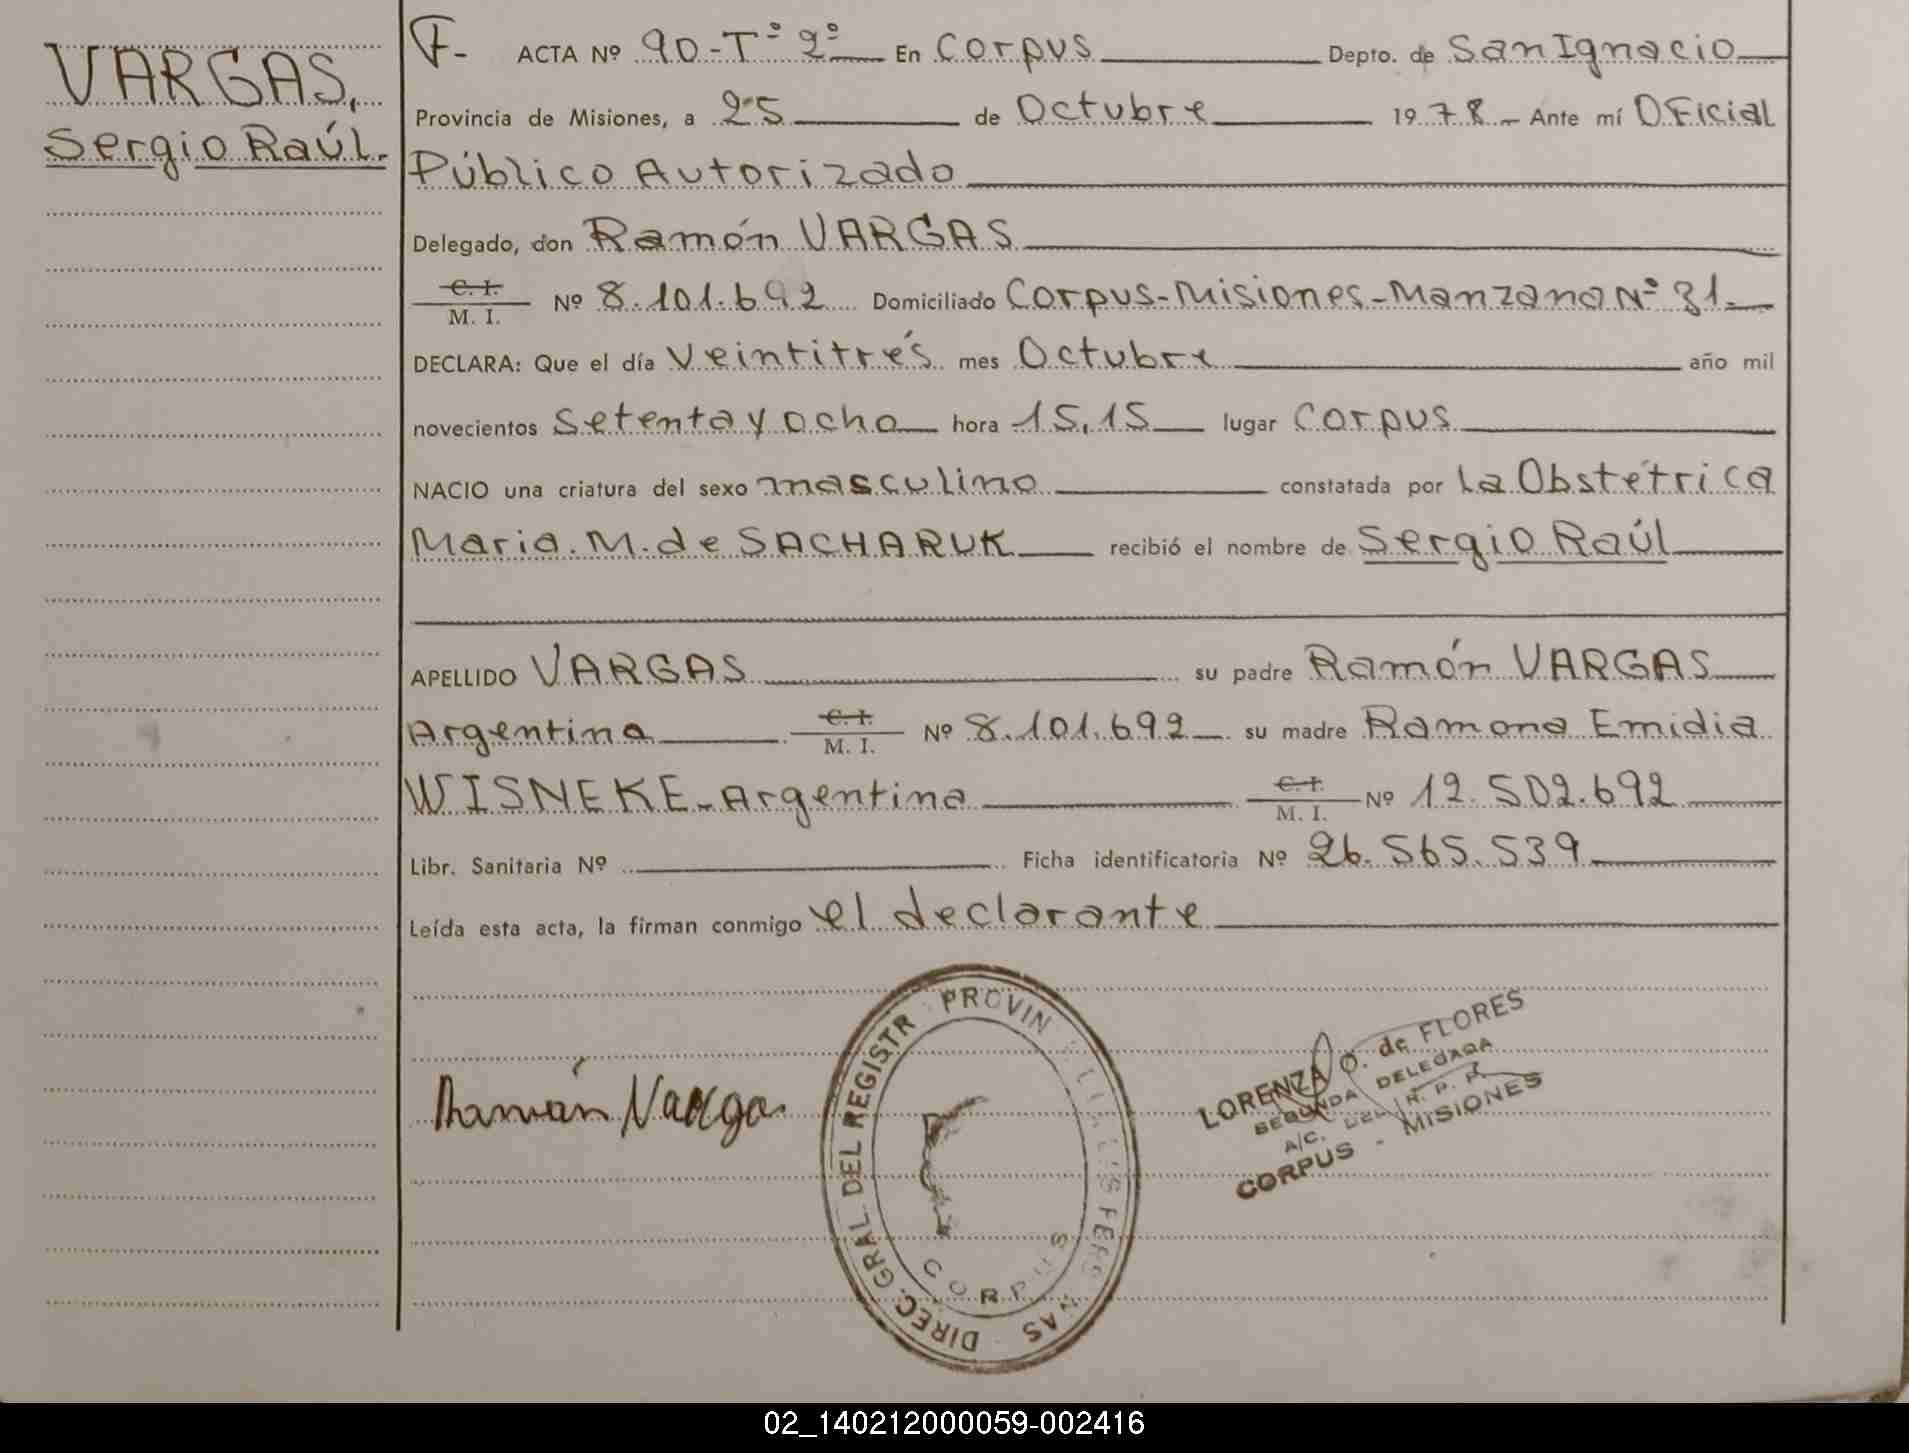 VARGAS,
Sergio Raúl.
F- ACTA Nº 90-Tº 2º En Corpus Depto. de San Ignacio
Provincia de Misiones, a 25 de Octubre 1978 Ante mí OFicial
Público Autorizado
Delegado, don Ramón VARGAS
C. I. M. I. Nº 8.101.692 Domiciliado Corpus-Misiones-Manzana Nº 31.
DECLARA: Que el día Veintitrés mes Octubre año mil
novecientos Setenta y ocho hora 15,15 lugar Corpus
NACIO una criatura del sexo masculino constatada por La Obstétrica
Maria. M. de SACHARUK recibió el nombre de Sergio Raúl
APELLIDO VARGAS su padre Ramón VARGAS
Argentina C. I. M. I. Nº 8.101.692 su madre Ramona Emidia
WISNEKE-Argentina C. I. M. I. Nº 12.502.692
Libr. Sanitaria Nº Ficha identificatoria Nº 26.565.539
Leída esta acta, la firman conmigo el declarante
Ramón Vargas
DIREC. GRAL. DEL REGISTR PROVIN
CORPUS
LORENZA O. de FLORES
SEGUNDA DELEGADA
A/C. DEL R. P. P.
CORPUS - MISIONES
02_140212000059-002416